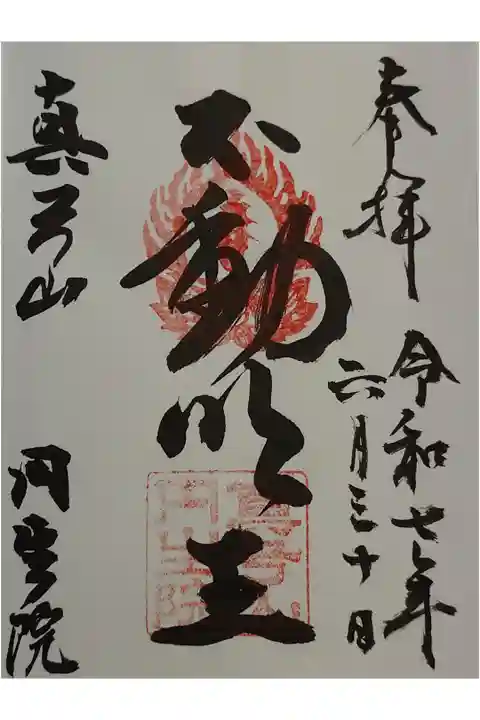 奉拝
令和七年
六月三十日
不動明王
真弓山
円生院